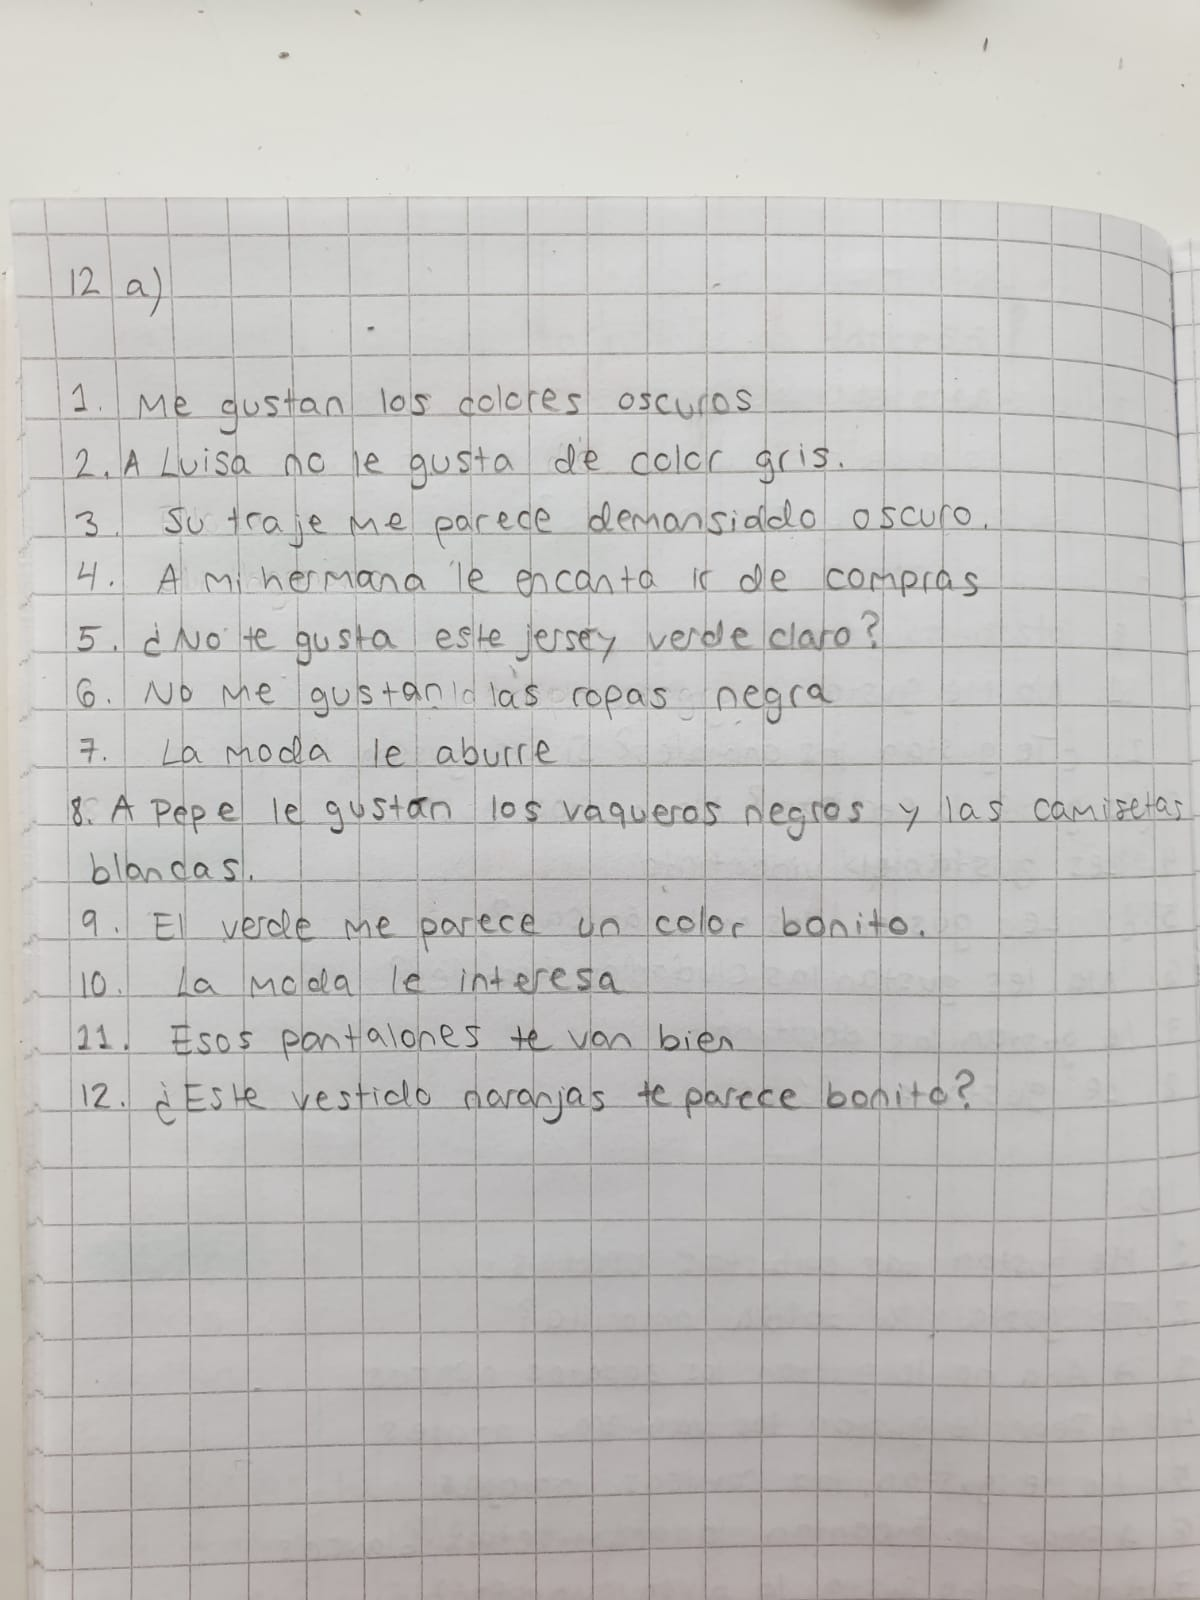 12 a)
1. Me gustan los colores oscuros
2. A Luisa no le gusta de color gris.
3. Su traje me parece demansiado oscuro.
4. A mi hermana le encanta ir de compras
5. ¿No te gusta este jersey verde claro?
6. No me gustan las ropas negra
7. La moda le aburre
8. A Pepe le gustan los vaqueros negros y las camisetas
blancas.
9. El verde me parece un color bonito.
10. La moda le interesa
11. Esos pantalones te van bien
12. ¿Este vestido naranjas te parece bonito?